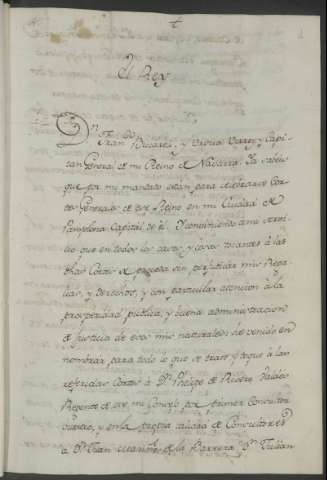 El Rey
Dn. Fran.co Bucareli, y Ursua Virrey y Capi-
tan General de mi Reino de Navarra. Ya sabeis
que por mi mandado estan para celebrarse Cor-
tes Generales de ese Reino en mi Ciudad de
Pamplona Capital de él. Y conviniendo a mi servi-
cio que en todos los casos, y cosas tocantes á las
dhas Cortes se proceda sin perjudicar mis Rega-
lias, y derechos, y con particular atencion á la
prosperidad publica, y buena administracion
de justicia de esos mis naturales he venido en
nombrar para todo lo que se trate y toque á las
referidas Cortes á Dn. Phelipe de Rivero Valdés
Regente de ese mi Consejo por primer Consultor
, y en la propia calidad de Consultores
á Dn. Fran.co de la Barrera Dn. Julian